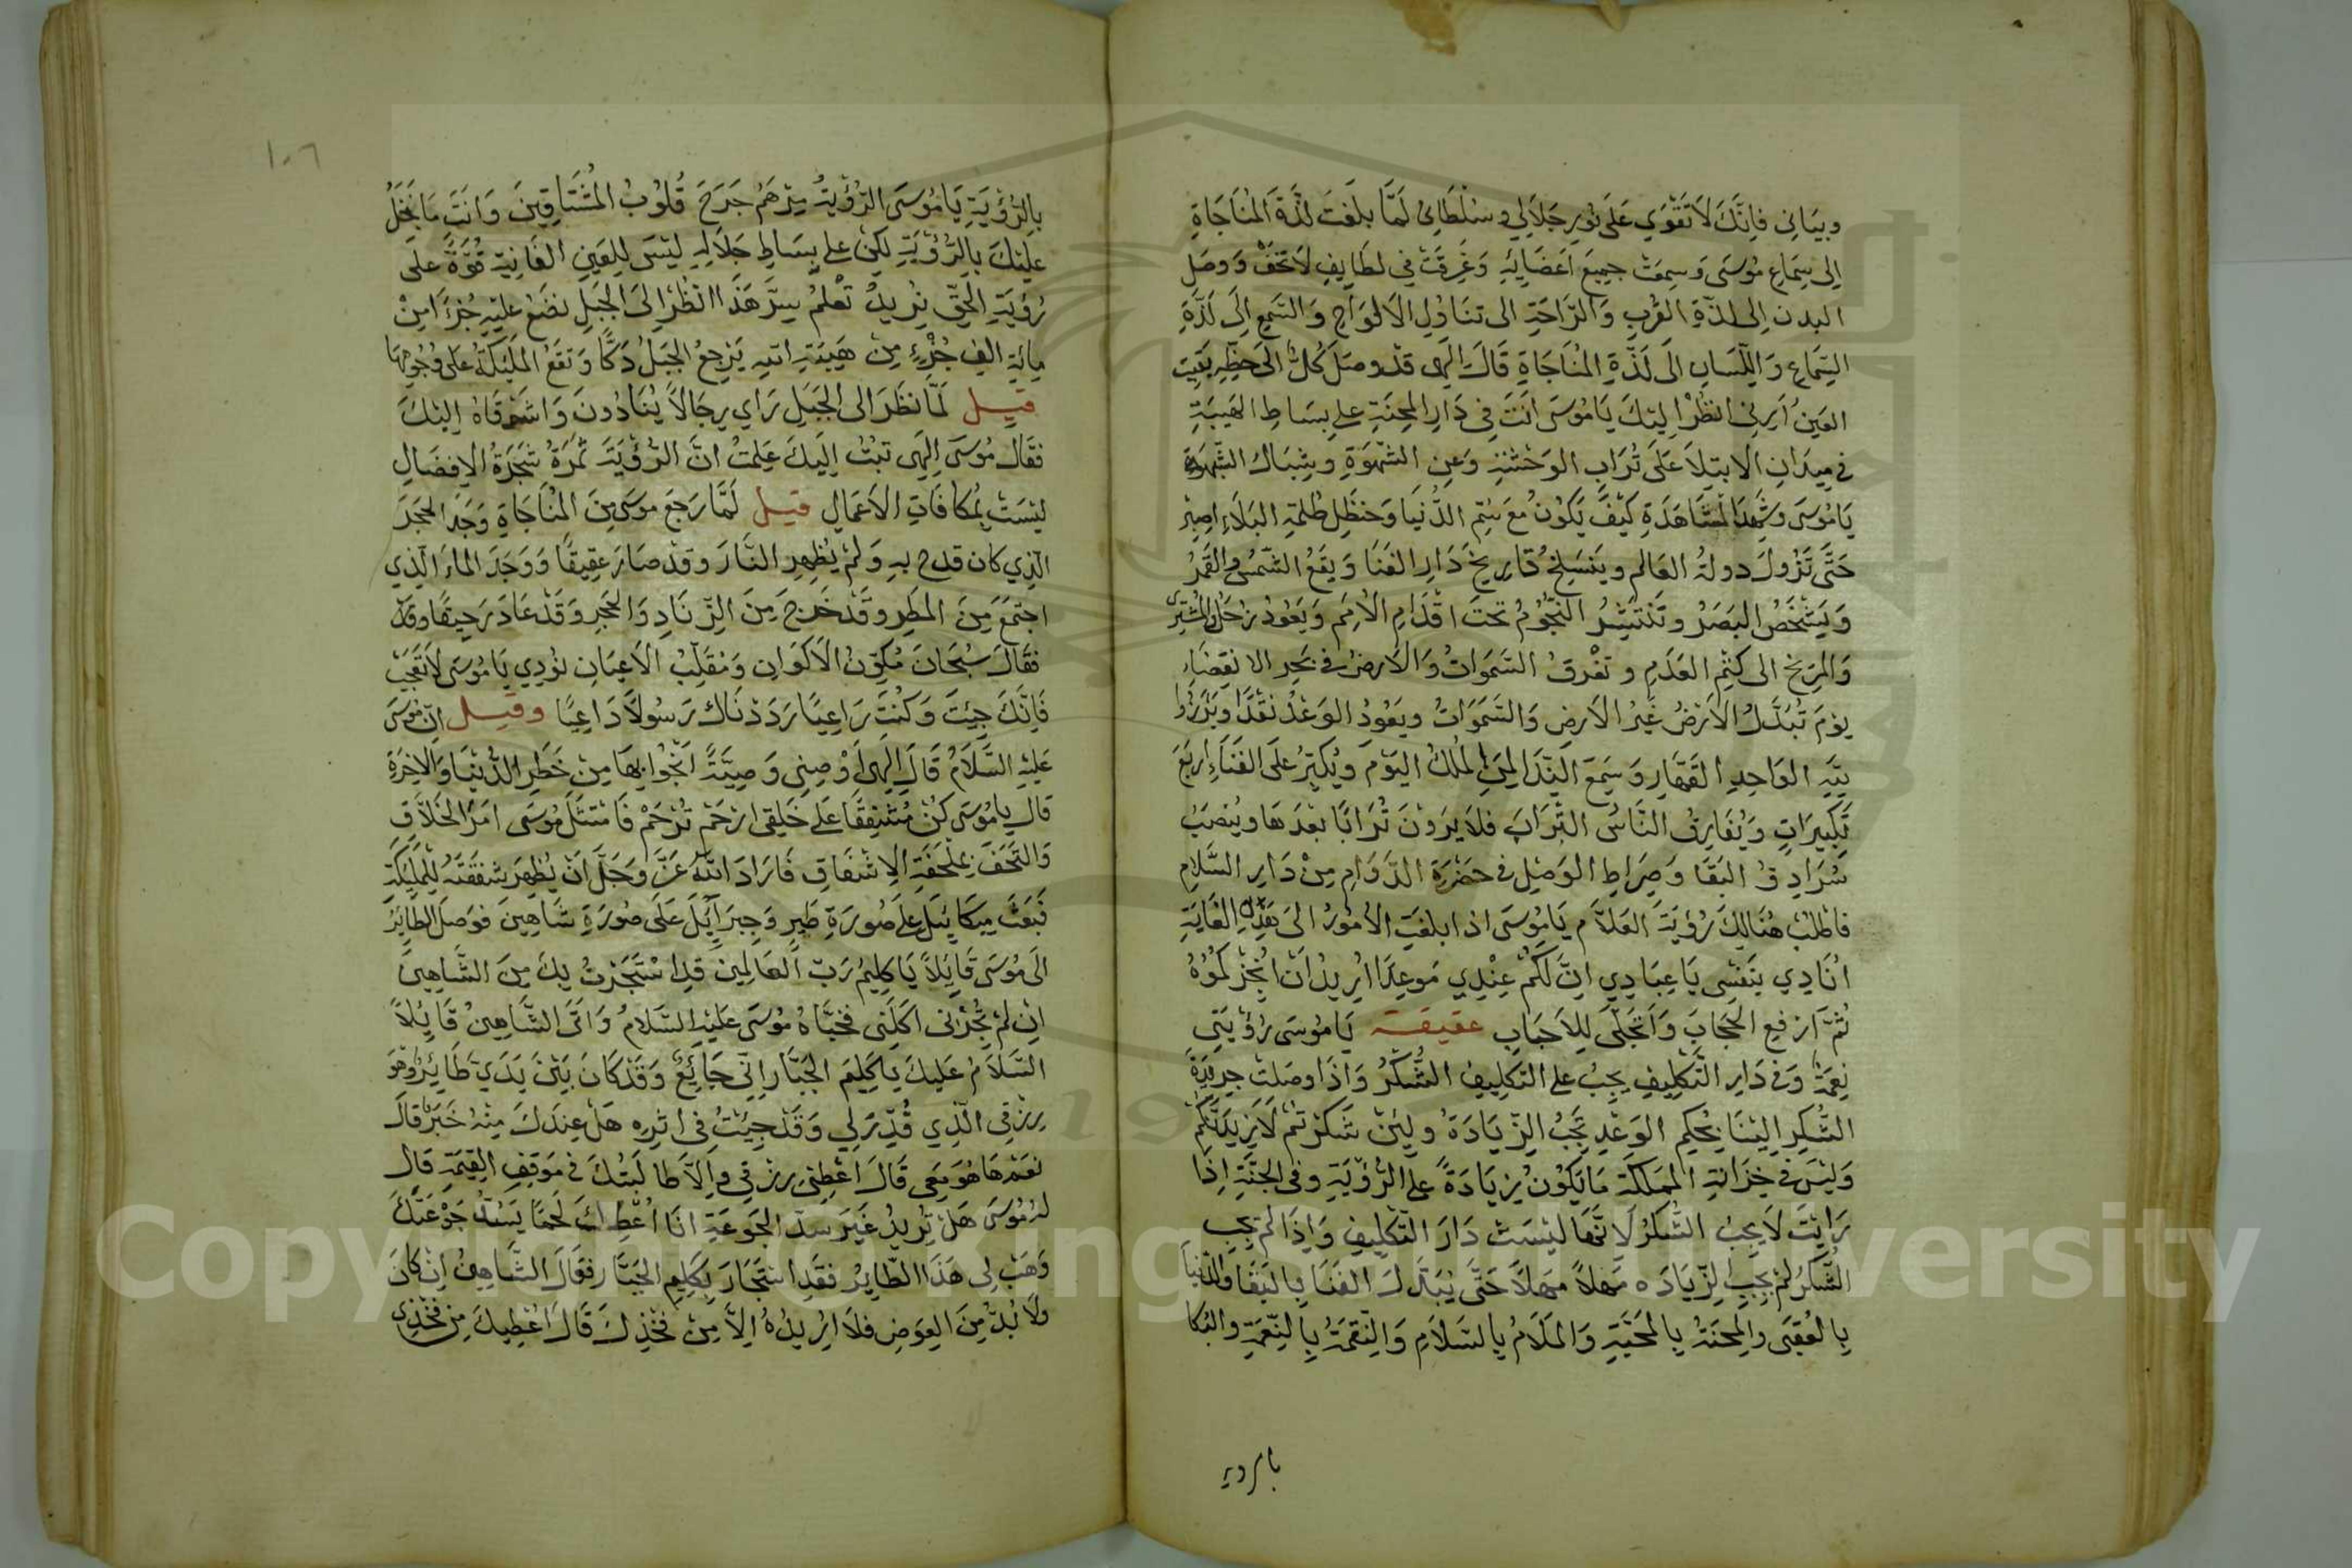 وبيَاني فانَّكَ لَا تَقْوَي عَلَى نُورِ جَلَالِي وسُلْطَاني لَمَّا بلَغَت لذَّة المنَاجَاةِ
اِلى سِمَاعِ مُوسَى وَسِمعَتْ جميعَ اعَضَائِهِ وَغَرِقَتْ فِي لطَايفِ لَا تَخَفْ وَوصَلِ
البدن اِلى لذّةِ القُربِ وَالرَّاحَةِ الى تنَاوُلِ الاَلوَاحِ وَالسَّمعِ الَى لذَّةِ
السِّمَاعِ وَاللّسَانِ الَى لَذّةِ المُنَاجَاةِ قَالَ الَهى قَدْ وصَلَ كُلٌّ الَى حَظِّهِ بَقِيَت
العَينُ اَرِني انظُرْ اليكَ يَا مُوسَى انَتَ فِي دَارِ المِحنَةِ على بسَاطِ الهَيبَةِ
في ميدَانِ الابتِلَا عَلَى تُرَابِ الوَحشَةِ وَعَنِ الشّهوَةِ وشِبَاك الشّهوَة
يَا مُوسَى وشَهدُ المشَاهَدَةِ كَيفَ يَكوُنُ مَعَ سَمِّ الدُّنيَا وَحنظَلِ ظُلمَةِ البَلَاءِ اصِبْر
حَتَّى تَزُولَ دولةُ العَالم ويَنسَلِخُ تَاريخ دَارِ الفَنَا وَيقَعُ الشّمسُ والقَمَرُ
وَيَشْخَصُ البَصَرُ وتَنتَشِرُ النّجُومُ تحتَ اقدَامِ الاُمَمِ وَيَعُودُ زحَلُ والمُشتَرِى
وَالمرِّيخ الى كَتْمِ العَدَمِ وتَغْرقُ السَّمَواتُ وَالاَرضُ في بَحرِ الانقضَاءِ
يومَ تُبَدَّلُ الاَرْضُ غَيْرَ الاَرضِ وَالسَّمَوَاتُ ويَعُودُ الوَعْدُ نَقدًا وَبَرَزُوا
للهِ الوَاحِدِ القَهَّارِ وَسَمِعَ النِّدَا لمنِ الملكُ اليَوْمَ وَيُكَبّرُ عَلَى الفَنَاءِ اربَعَ
تَكبِيرَاتٍ وَيُفَارقُ النَّاسُ التُّرَابَ فلَا يَرَونَ تُرَابًا بعْدَهَا وينُصَبُ
سُرَادِقُ البَقَا وَصِرَاطِ الوَصْلِ في حضْرَةِ الدَّوَامِ مِنْ دَارِ السَّلَامِ
فاطلُبْ هُنَالِكَ رُؤيَةَ العَلاَّمِ يَا مُوسَى اذا بلغَتِ الامُورُ الىَ هَذِهِ الغَايَةِ
انَادِي بنَفْسِى يَا عِبَادِي انّ لَكُمْ عِنْدِي مَوعِدًا ارُيدُ انْ انُجْزَ كُمُوُهُ
ثُمَّ ارْفَعِ الحِجَابَ وَاتَجَلَّى لِلاَحبَابِ عقيقـة يَا مُوسَى رُؤيَتِي
نِعْمَةٌ وَفي دَارِ التَّكلِيفِ يجبُ على التّكليفِ الشُّكْرُ وَاذَا وصَلتْ جريدَةُ
الشُّكرِ اليْنَا بحُكِم الوَعْدِ تَجِبُ الزّيَادَةُ ولئِنْ شَكَرْتمُ لَاَزِيدَنَّكُمْ
وَليْسَ في خِزَانةِ المَملكَةِ مَا يَكوُن زِيَادَةً على الرُّؤيَةِ وفي الجنَّةِ اِذَا
رَايَتَ لَا يَجِبُ الشُّكرُ لَانَّهَا ليْسَتْ دَارَ التّكْلِيفِ وَاِذَا لم يَجِبِ
الشُّكْرُ لمْ يَجِبِ الزّيَادَه مَهْلاً مهَلاً حَتَّى يُبَدَّلَ الفَنَا بِالبَقَا وَالدُّنيَا
بِالعُقبَى والِمحنَةُ بِالمحبَّةِ وَالمَلَامُ بِالسَّلَامِ وَالنِّقْمَةُ بِالنِّعمَةِ والبُكا
بالرويه
١٠٦
بالرُؤيَةِ يَا مُوسَى الرُّؤيَةُ مرْهَمُ جَرَحَ قُلُوبُ المُشْتَاقِينَ وَانَتَ مَا نبخَلُ
عليْكَ بالرُّؤيَةِ لكِنْ على بِسَاطِ جَلَالهِ ليْسَ لِلعَينِ الفَانِيَةِ قُوَّةٌ علَى
رُؤيَةِ الحقِّ تُريدُ تَعْلَمُ سِرَّ هَذَا انظُرْ اِلىَ الجبَلِ نضَعُ عليْهِ جُزءًا مِنْ
مايَةِ الفِ جُزْءٍ مِنْ هَيبَتهِ يَرجعُ الجبَلُ دَكًّا وَتقَعُ الملَئِكةُ عَلَى وُجُوهِهَا
قيـل لَمّا نظَرَ الى الجَبَلِ رَاي رجَالاً يُنَادُونَ وَاشَوْقَاهُ اليْكَ
فقَالَ مُوسَى الِهَى تبْتُ الَيكَ عَلِمتُ انَّ الرُّؤيَةَ ثَمَرَةُ شَجَرَةُ الاِفضَالِ
ليْسَتْ بمُكافَاتِ الاَعمَالِ قيـل لَمَّا رَجَعَ موسَى مِنَ المُنَاجَاةِ وَجَدَ الحجَرَ
الّذِي كان قدح بهِ وَلمْ يُظهِرِ النَّارَ وقدْ صَارَ عَقِيقًا وَوَجَدَ الماءَ الّذي
اجتمَعَ مِنَ المطَرِ وقَدْ خَرجَ مِنَ الزّنَادِ وَالحَجرِ وَقَدْ عَادَ رَحِيقًا
فقَالَ سُبحَانَ مُكوّنُ الاَكْوَانِ وَمُقَلّبُ الاَعيَانِ نوُدِي يَا موُسَى لَا تعَجَبْ
فَانَّكَ جِيْتَ وَكُنْتَ رَاعِيًا رَدَدْنَاك رَسُولاً دَاعِيًا وقيـل انّ موُسَى
عَليْهِ السَّلَامُ قَالَ الهِى اَوْصِنِى وَصِيَّةً انَجُوا بِهَا مِنْ خَطَرِ الدُّنْيَا وَالاخِرَةِ
قال يا موُسَى كنْ مُشْفِقًا عَلى خَلِقى ارْحَمْ تُرْحَمْ فَامتَثلَ مُوسَى امَرَ الخلاَّقِ
وَالتَحَفَ بملحَفَةِ الاِشفَاقِ فَارَادَ اللّهُ عَزَّ وَجَلَّ انْ يُظهِرَ شفَقَتَهُ لِلمَلَئِكَةِ
فَبَعَثَ ميكَائيَل علَى صُورَةِ طَيرٍ وَجِبرَائيلَ عَلَى صُورَةِ شَاهِينَ فوَصَلَ الطَائِرُ
الَى مُوسَى قَايلاً يَا كِليمُ رَبّ العَالِمينَ قدِ اسْتَجَرْتُ بكَ مِنَ الشَّاهِينَ
انِ لَمْ تُجرْني اكَلَنى فخَبَّاهُ مُوسَى عَليْهِ السَّلَامُ وَاتَى الشَّاهِينُ قَايُلاً
السَّلَامُ عَليكَ يَا كَلِيمَ الجَبَّارِ انّي جَائِعٌ وَقَدْ كَانَ بَيْنَ يَدَيَّ طَائِرٌ وهُوَ
رِزقي الّذِي قُدِّرَ لِي وَقَدْ جِئْتُ فِى اثَرِه هَلْ عِنْدَكَ مِنْهُ خَبَرٌ قَالَ
نعَم هَا هُوَ مَعِى قَالَ اعْطِني رزقي والَّا طالَبتُكَ في مَوقِفِ القِيمَةِ قَالِ
لهُ موُسَى هَلْ تُريدُ غَيرَ سدّ الجَوعَةِ انَا اُعْطِيكَ لَحمًا يَسُدُّ جَوْعَتَكَ
وَهَبْ لى هَذَا الطَّايِرُ فقَدِ اسْتَجَارَ بِكَلِيمِ الجَبَّارِ فقَالَ الشَّاهِينُ انْ كانَ
ولَا بُدَّ مِنَ العِوَضِ فلَا ارُيدُهُ الَّا مِنْ فخْذِكَ قَالَ اعْطِيكَ مِن فَخْذِى
Copyright © King Saud University